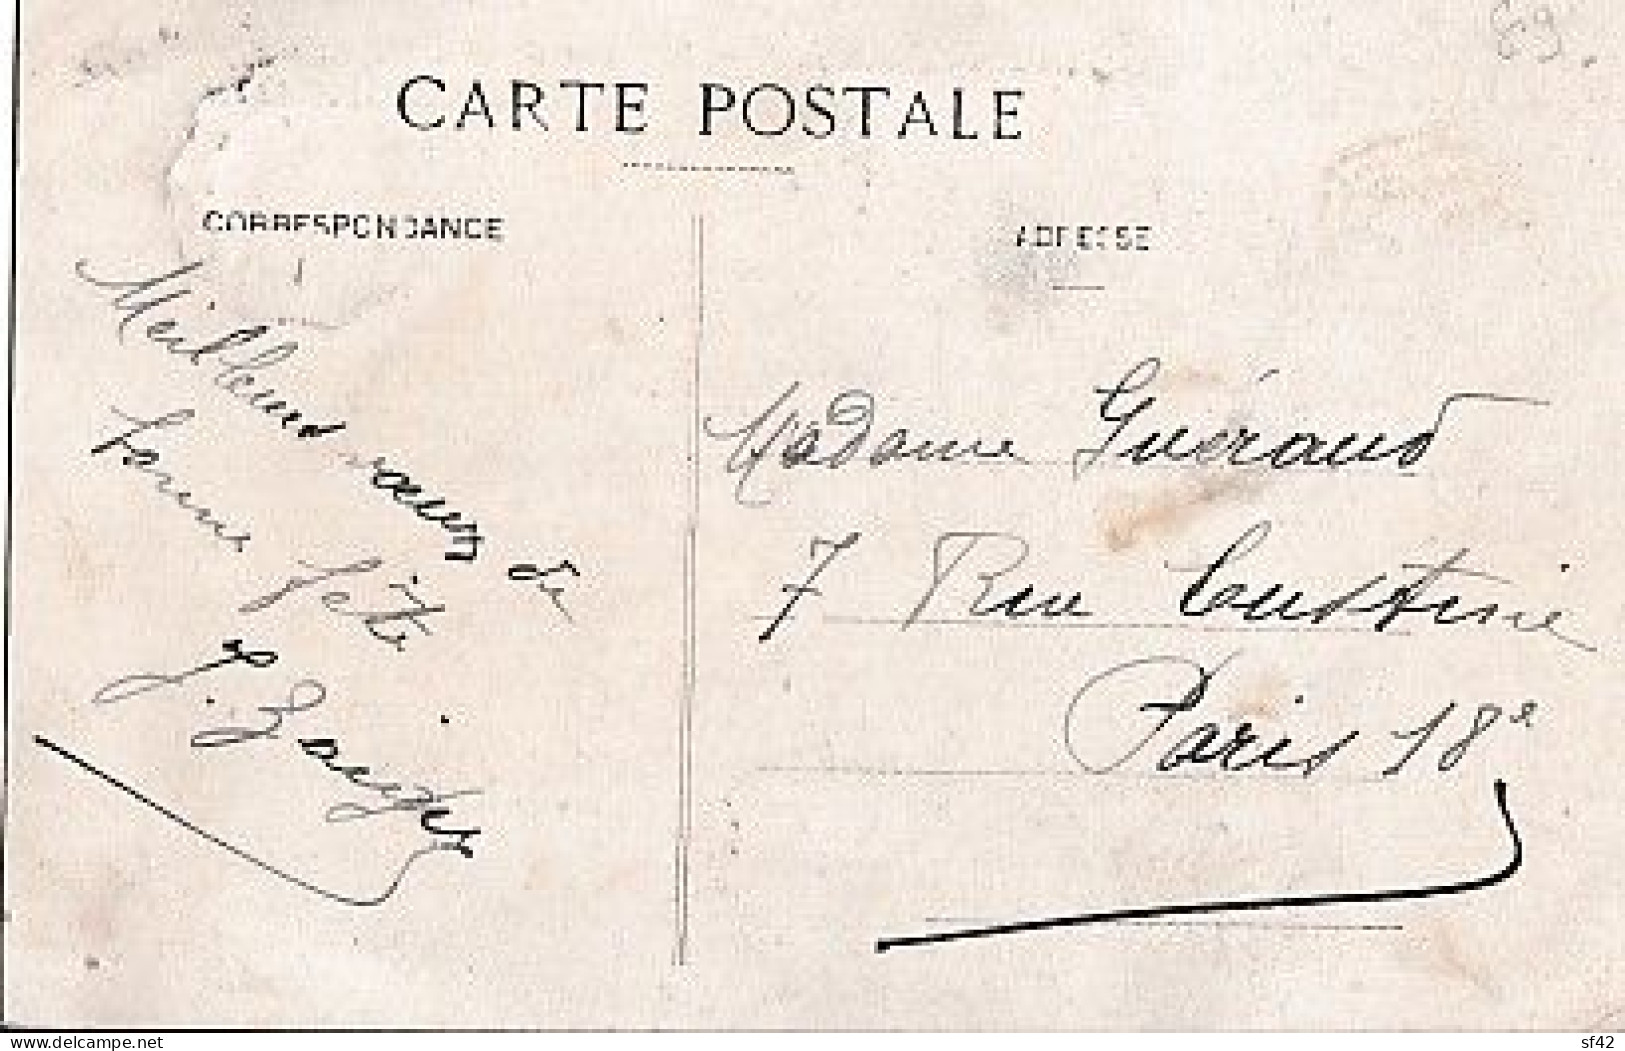 69.
CARTE POSTALE
CORRESPONDANCE
ADRESSE
Meilleurs vœux de
bonne fête
Madame Guéraud
7 Rue Custine
Paris 18e
www.delcampe.net
sf42